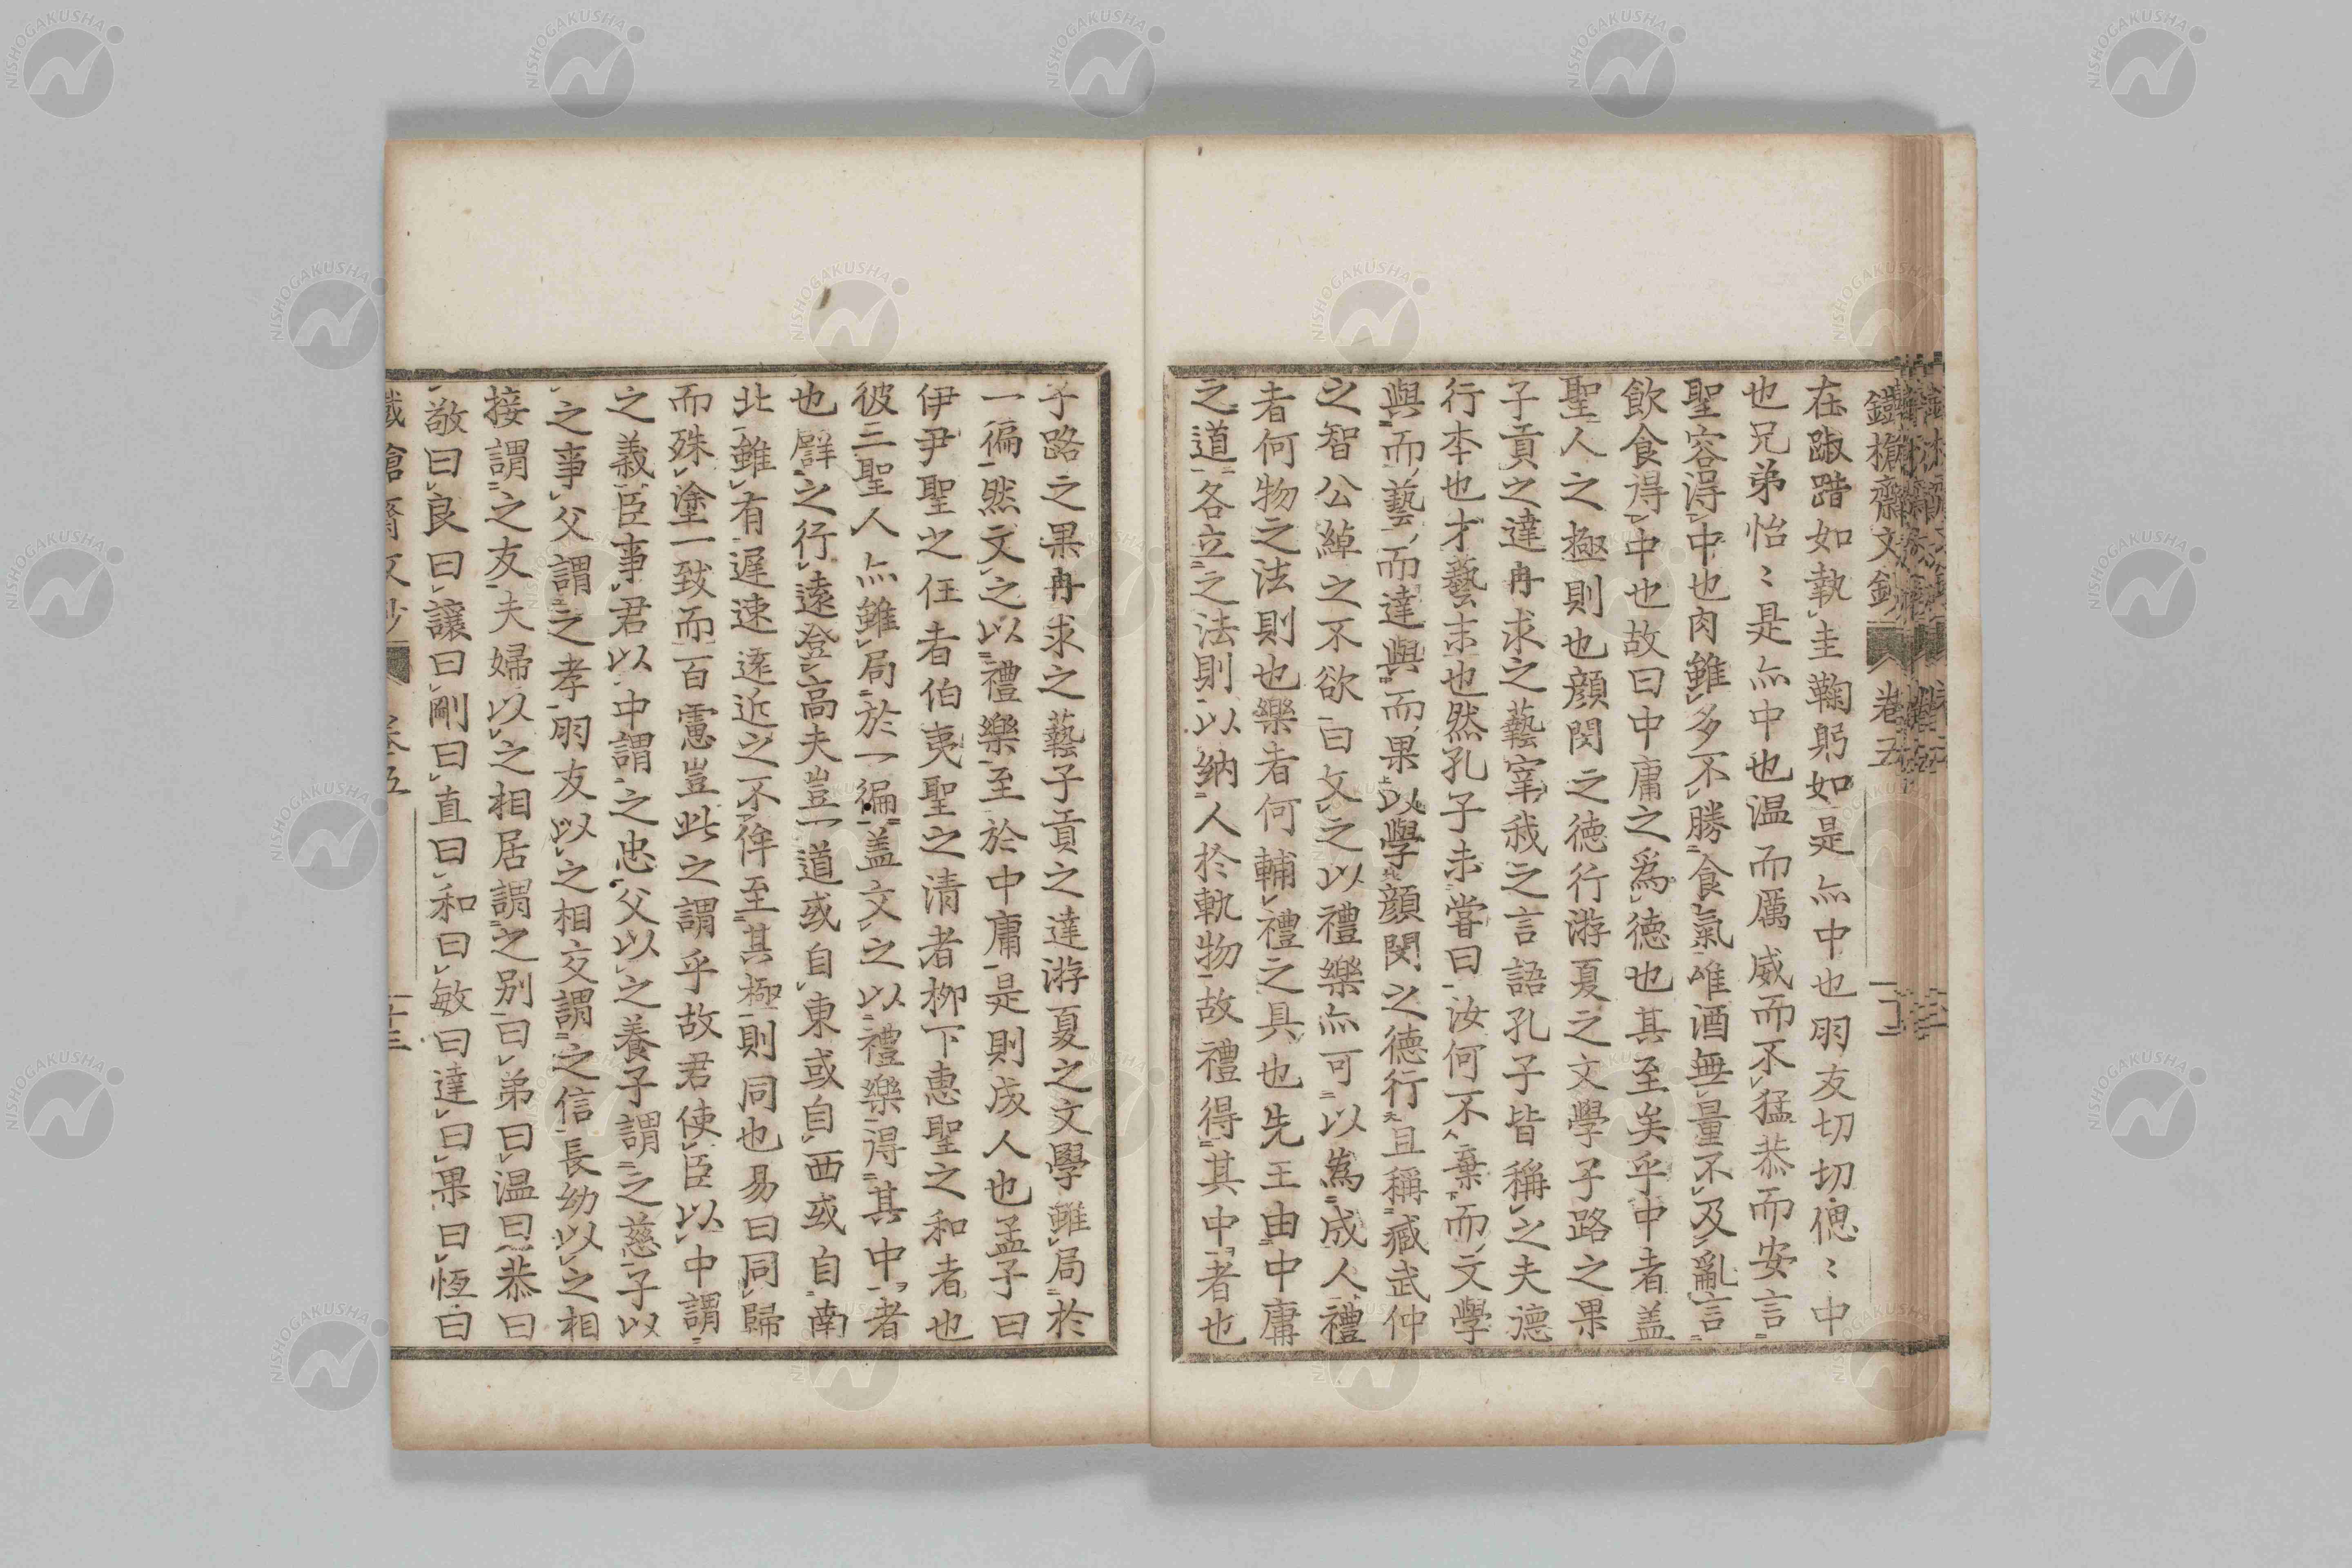 鐵槍齋文鈔 卷五
在踧踖如執圭鞠躬如是亦中也朋友切切偲〻中
也兄弟怡〻是亦中也温而厲威而不猛恭而安言
聖容得中也肉雖多不勝食氣唯酒無量不及亂言
飲食得中也故曰中庸之爲德也其至矣乎中者盖
聖人之極則也顔閔之德行游夏之文學子路之果
子貢之達冉求之藝宰我之言語孔子皆稱之夫德
行本也才藝末也然孔子未嘗曰汝何不棄而文學
與而藝而達與而果以學顔閔之德行且稱臧武仲
之智公綽之不欲曰文之以禮樂亦可以為成人禮
者何物之法則也樂者何輔禮之具也先王由中庸
之道各立之法則以納人於軌物故禮得其中者也
子路之果冉求之藝子貢之達游夏之文學雖局於
一偏然文之以禮樂至於中庸是則成人也孟子曰
伊尹聖之任者伯夷聖之清者柳下惠聖之和者也
彼三聖人亦雖局於一徧盖文之以禮樂得其中者
也譬之行遠登高夫豈一道或自東或自西或自南
北雖有遲速遠近之不侔至其極則同也易曰同歸
而殊塗一致而百慮豈此之謂乎故君使臣以中謂
之義臣事君以中謂之忠父以之養子謂之慈子以
之事父謂之孝朋友以之相交謂之信長幼以之相
接謂之友夫婦以之相居謂之別曰弟曰温曰恭曰
敬曰良曰讓曰剛曰直曰和曰敏曰達曰果曰恆曰
鐵槍齋文鈔 卷五 十三
NISHOGAKUSHA